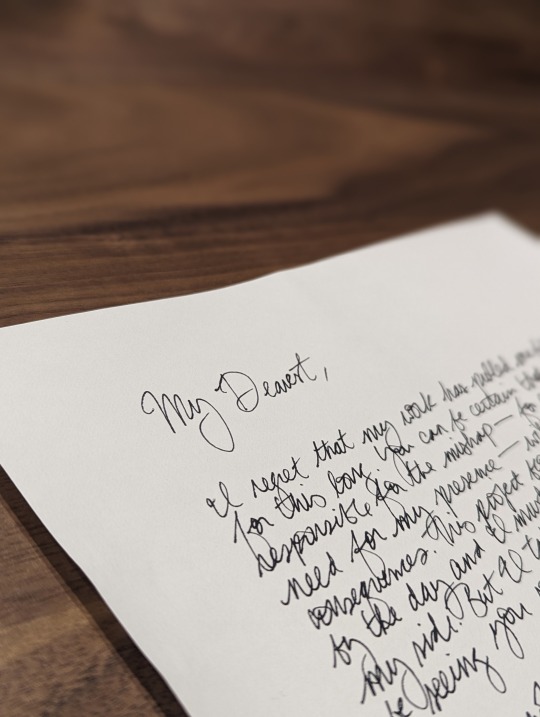 My Dearest,
I regret that my work has pulled
for this long. You can be certain that
responsible for the mishap — for
need for my presence —
consequences. This project
by the day and I must
my side. But I
be seeing you